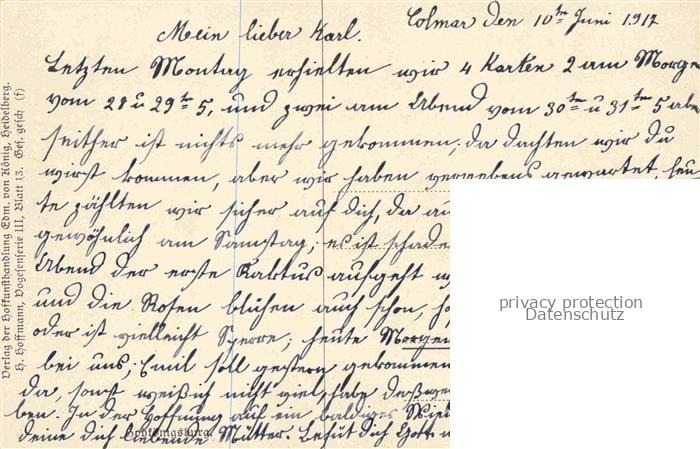 Colmar den 10ten Juni 1917
Mein lieber Karl.
Letzten Montag erhielten wir 4 Karten 2 am Morgen
vom 28 u 29ten 5, und zwei am Abend vom 30ten u 31ten 5 aber
seither ist nichts mehr gekommen; da dachten wir du
wirst kommen, aber wir haben vergebens gewartet, heu
te zählten wir sicher auf dich, da
gewöhnlich am Samstag; es ist schade
Abend der erste Kaktus aufgeht
und die Rosen blühen auch schon,
oder ist vielleicht Sperre; heute Morgen
bei uns; Emil soll gestern gekommen
da, sonst weiß ich nicht viel, habe
ben. In der Hoffnung auf ein baldiges Wied
deine dich liebende Mutter. Behüt dich Gott
Hohkönigsburg
Verlag der Hofkunsthandlung Edm. von König, Heidelberg.
H. Hoffmann, Vogesenserie III, Blatt 13. Ges. gesch. (f)
privacy protection
Datenschutz